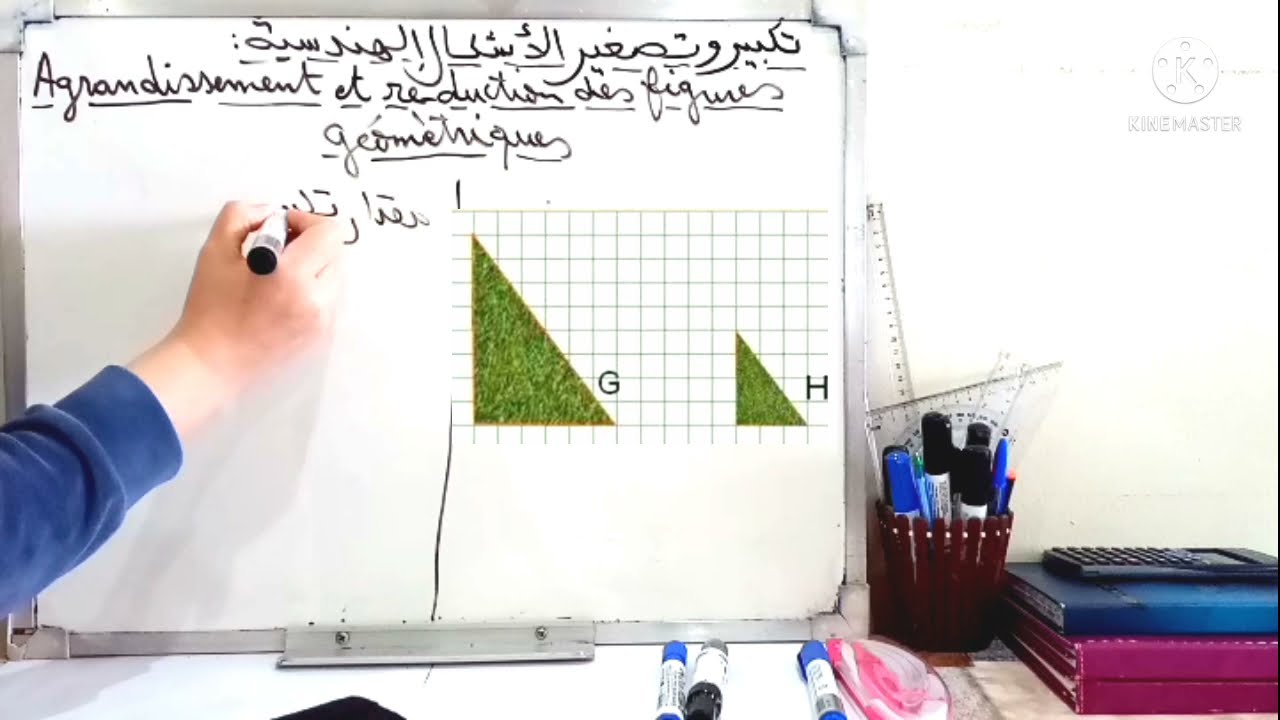 تكبير وتصغير الأشكال الهندسية:
Agrandissement et réduction des figures
géométriques
مقدار
G
H
K
KINEMASTER